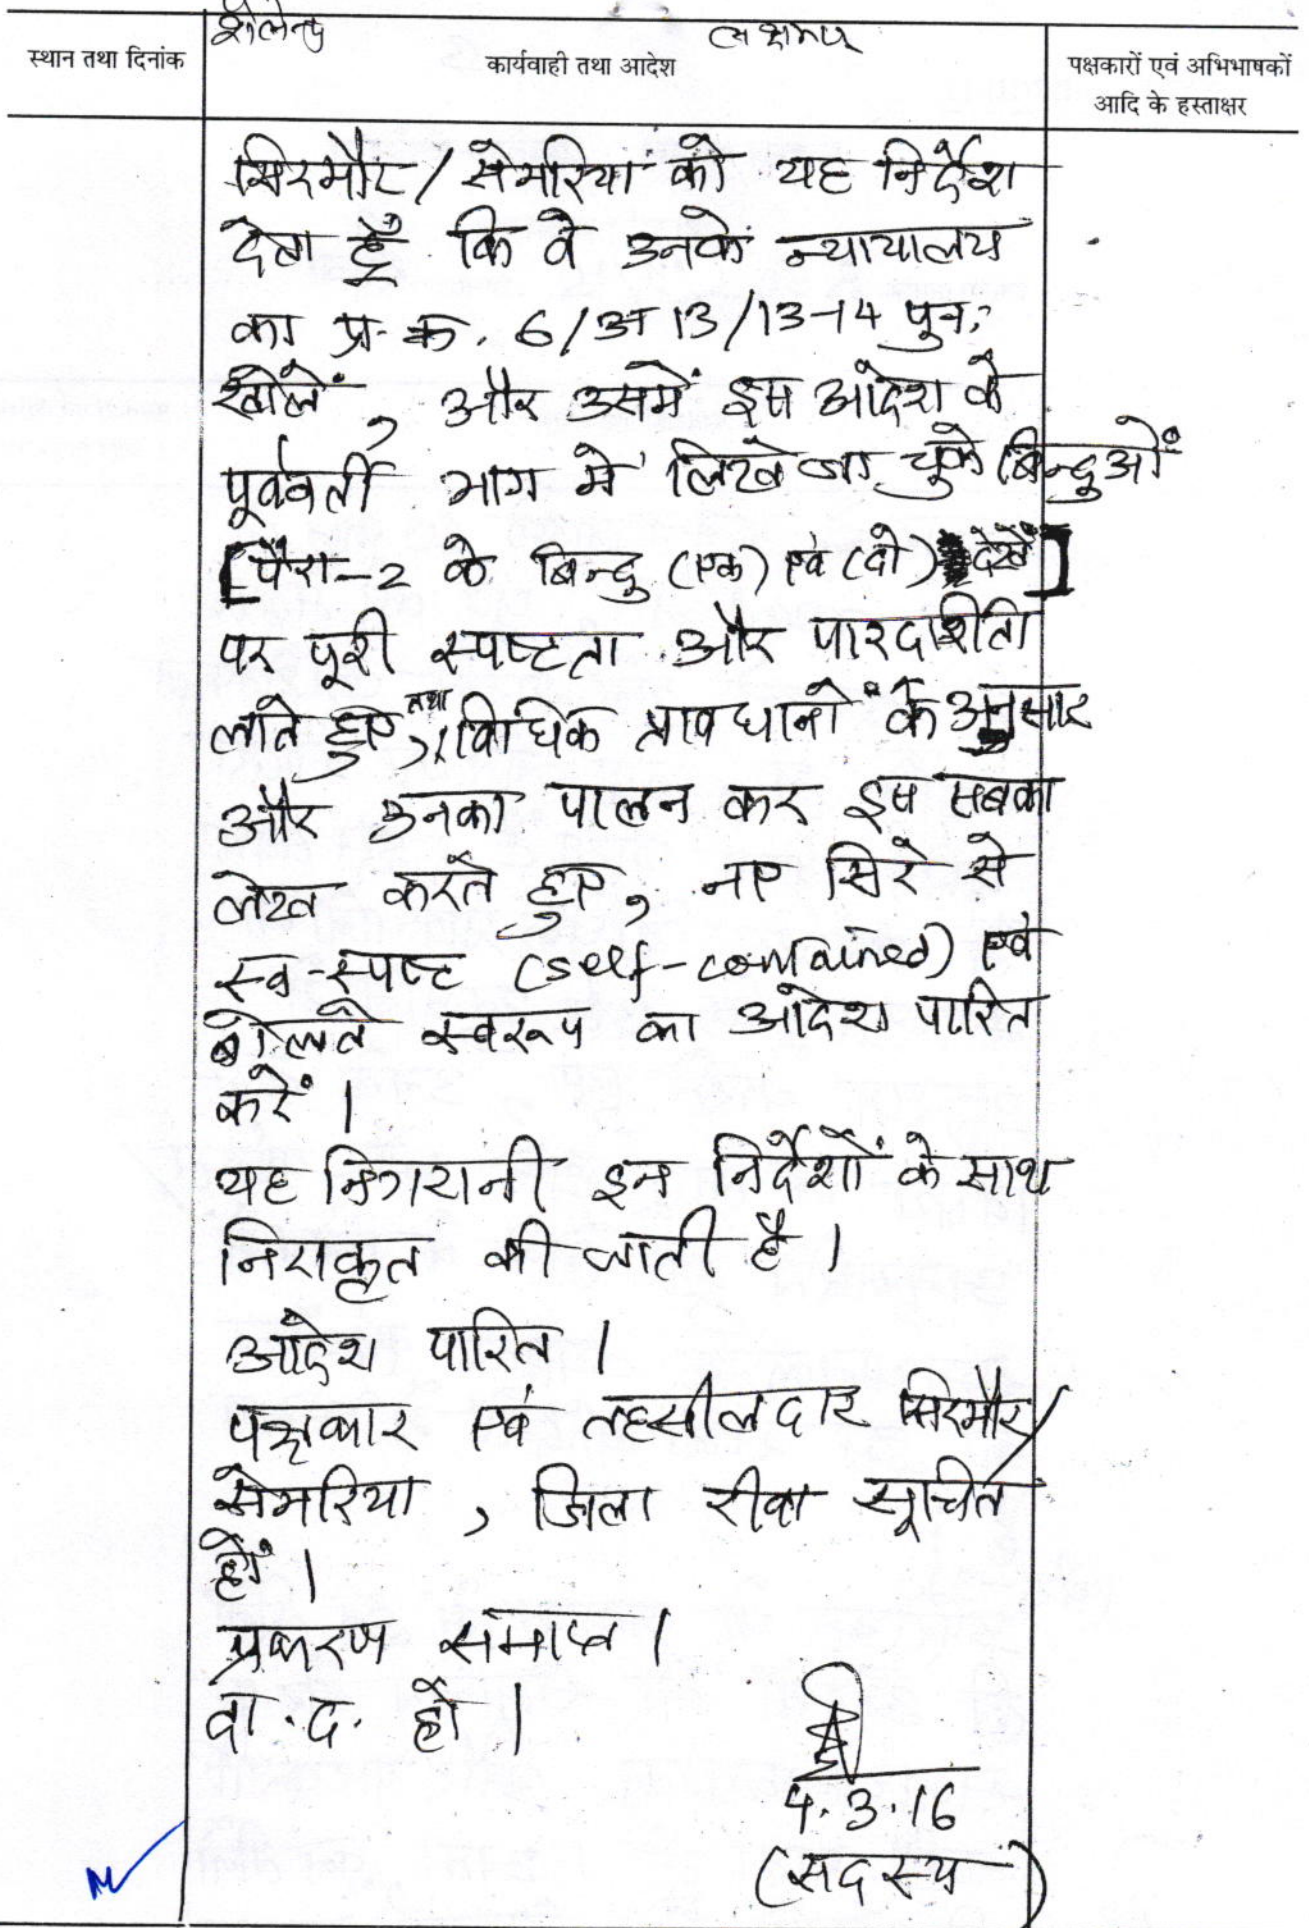 शैलेन्द्र
स्थान तथा दिनांक
कार्यवाही तथा आदेश
पक्षकारों एवं अभिभाषकों
आदि के हस्ताक्षर
सिरमौर / सेमरिया को यह निर्देश
देता हूँ कि वे उनके न्यायालय
का प्र. क्र. 6/अ 13/13-14 पुन:
खोलें, और उसमें इस आदेश के
पूर्ववर्ती भाग में लिखे जा चुके बिन्दुओं
[पैरा-2 के बिन्दु (एक) एवं (दो) देखें]
पर पूरी स्पष्टता और पारदर्शिता
लाते हुए, तथा विधिक प्रावधानों के अनुसार
और उनका पालन कर इस सबका
लेख करते हुए, नए सिरे से
स्व-स्पष्ट (self-contained) एवं
बोलते स्वरूप का आदेश पारित
करें।
यह निगरानी इन निर्देशों के साथ
निराकृत की जाती है।
आदेश पारित।
पक्षकार एवं तहसीलदार सिरमौर/
सेमरिया, जिला रीवा सूचित
हों।
प्रकरण समाप्त।
दा. द. हो।
4.3.16
(सदस्य)